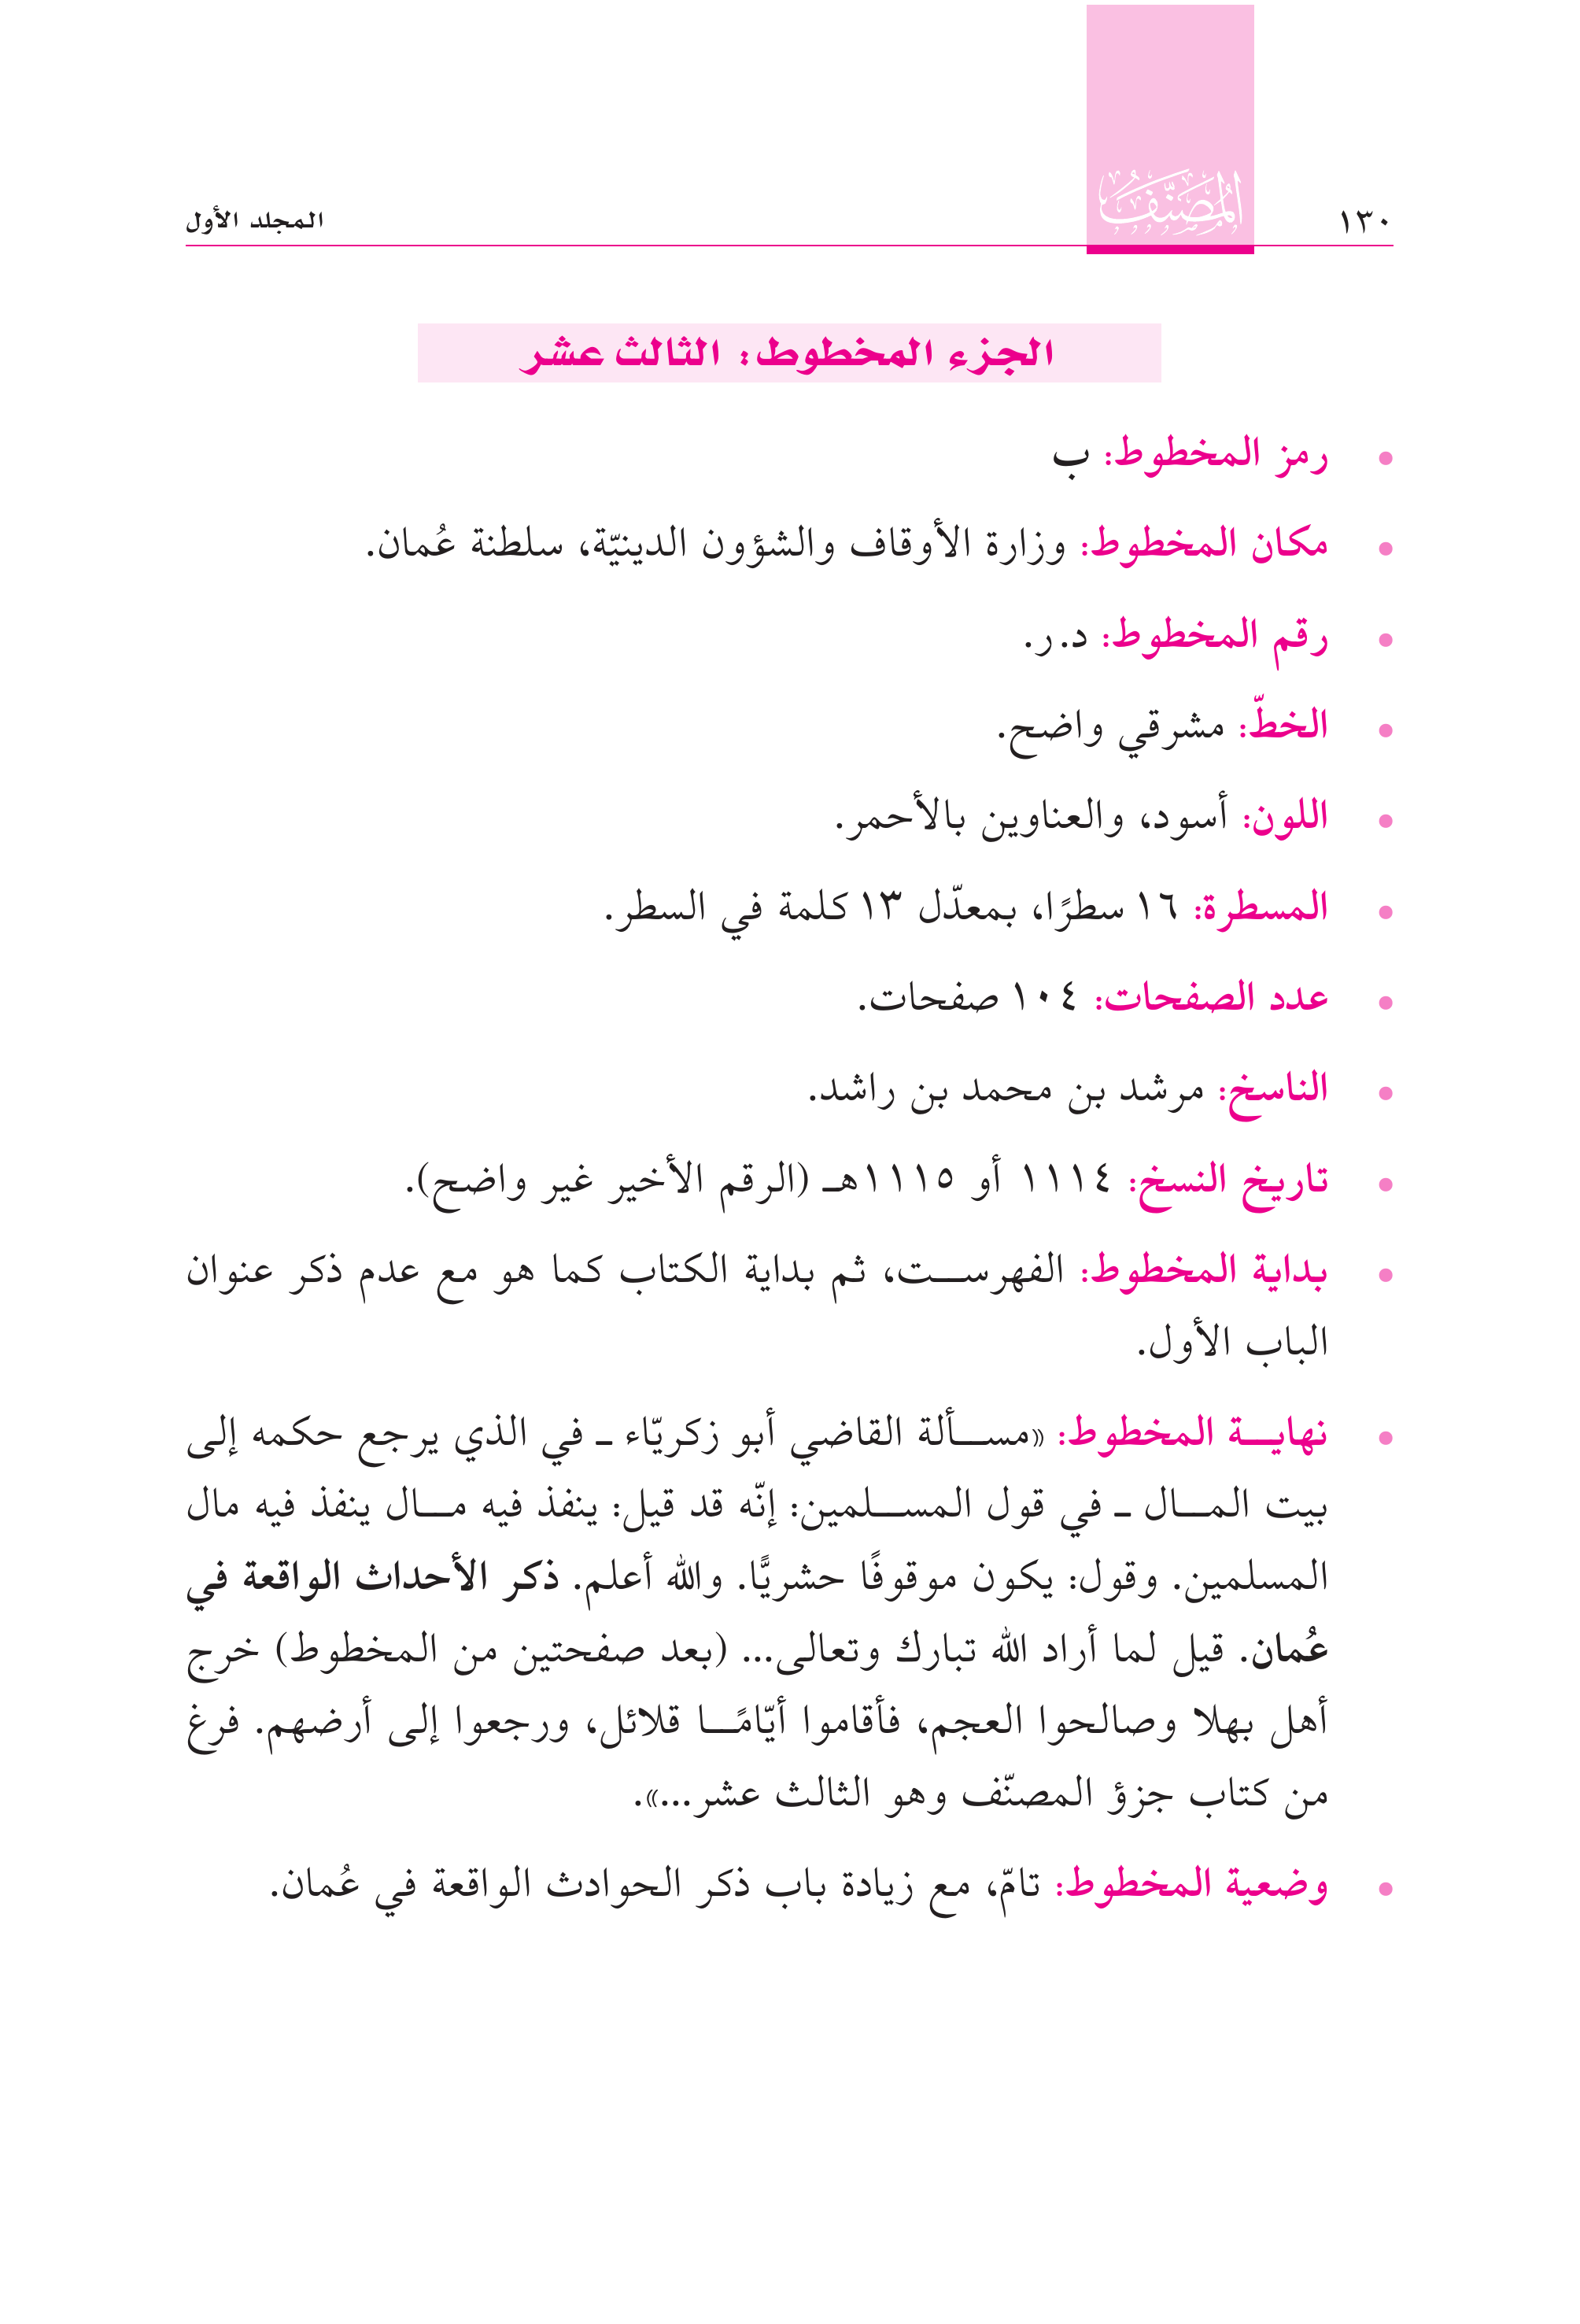 ١٣٠
المصنَّف
المجلد الأول
الجزء المخطوط: الثالث عشر
• رمز المخطوط: ب
• مكان المخطوط: وزارة الأوقاف والشؤون الدينيّة، سلطنة عُمان.
• رقم المخطوط: د.ر.
• الخطّ: مشرقي واضح.
• اللون: أسود، والعناوين بالأحمر.
• المسطرة: ١٦ سطرًا، بمعدّل ١٣ كلمة في السطر.
• عدد الصفحات: ١٠٤ صفحات.
• الناسخ: مرشد بن محمد بن راشد.
• تاريخ النسخ: ١١١٤ أو ١١١٥هـ (الرقم الأخير غير واضح).
• بداية المخطوط: الفهرست، ثم بداية الكتاب كما هو مع عدم ذكر عنوان
الباب الأول.
• نهاية المخطوط: «مسألة القاضي أبو زكريّاء ـ في الذي يرجع حكمه إلى
بيت المال ـ في قول المسلمين: إنّه قد قيل: ينفذ فيه مال ينفذ فيه مال
المسلمين. وقول: يكون موقوفًا حشريًّا. والله أعلم. ذكر الأحداث الواقعة في
عُمان. قيل لما أراد الله تبارك وتعالى... (بعد صفحتين من المخطوط) خرج
أهل بهلا وصالحوا العجم، فأقاموا أيّامًا قلائل، ورجعوا إلى أرضهم. فرغ
من كتاب جزؤ المصنّف وهو الثالث عشر...».
• وضعية المخطوط: تامّ، مع زيادة باب ذكر الحوادث الواقعة في عُمان.